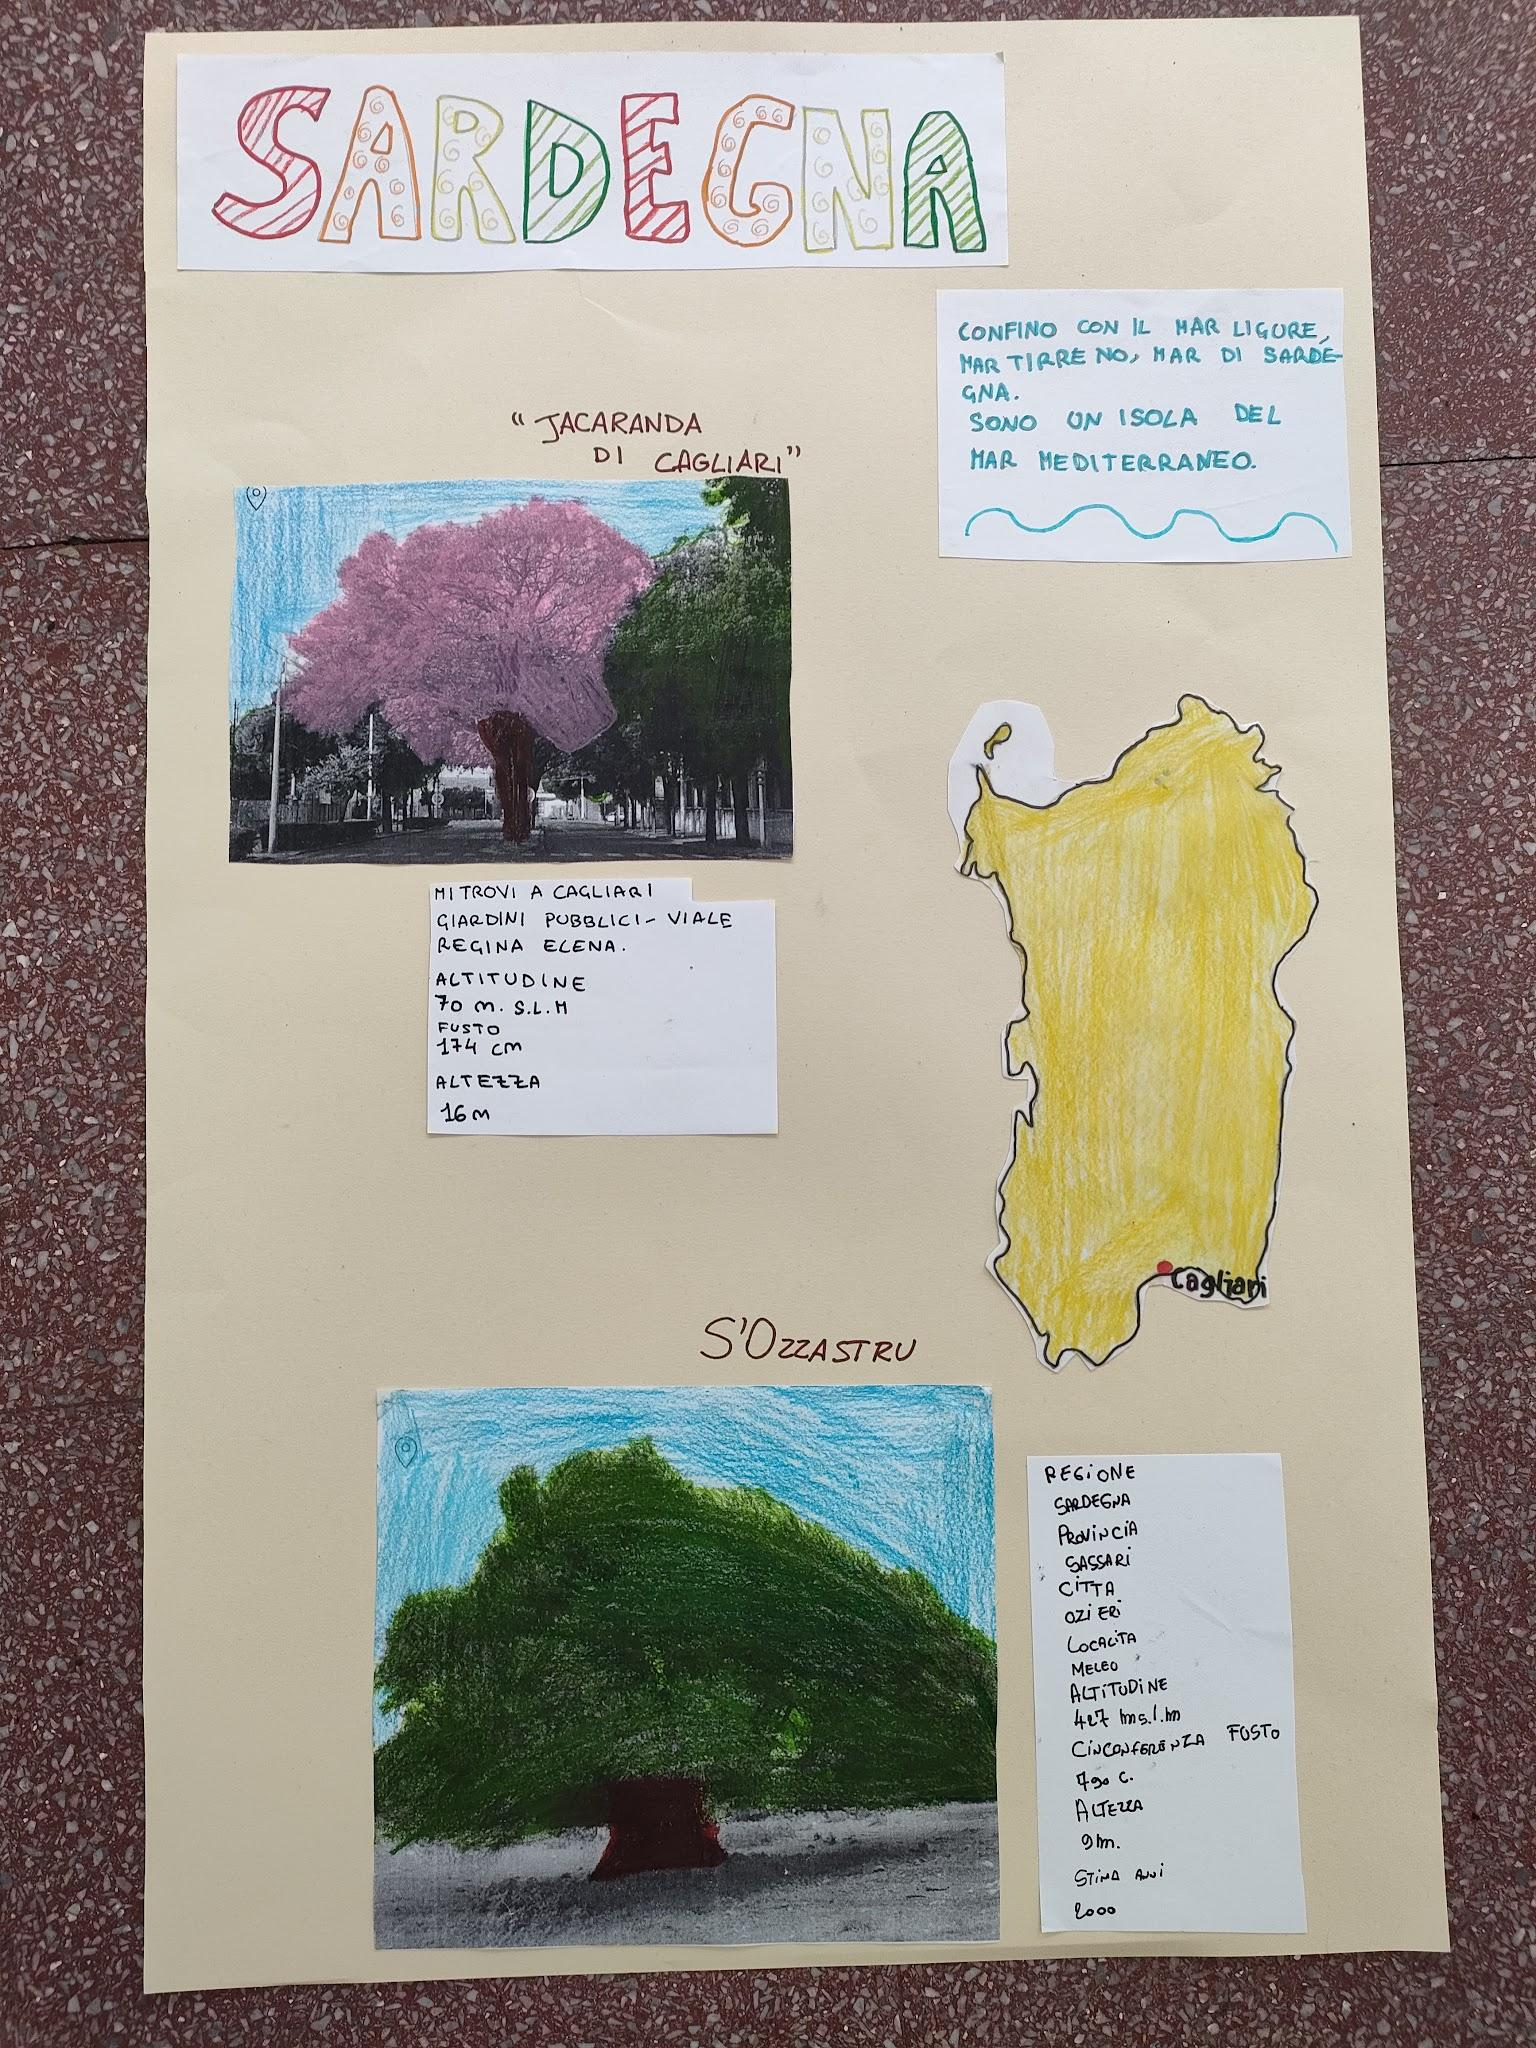 SARDEGNA
CONFINO CON IL MAR LIGURE,
MAR TIRRENO, MAR DI SARDE-
GNA.
SONO UN ISOLA DEL
MAR MEDITERRANEO.
"JACARANDA
DI CAGLIARI"
MI TROVI A CAGLIARI
GIARDINI PUBBLICI- VIALE
REGINA ELENA.
ALTITUDINE
70 m. S.L.M
FUSTO
174 cm
ALTEZZA
16 m
Cagliari
S'OZZASTRU
REGIONE
SARDEGNA
PROVINCIA
SASSARI
CITTA
OZIERI
LOCALITA
MELEO
ALTITUDINE
427 ms.l.m
CINCONFERENZA FUSTO
790 C.
ALTEZZA
9m.
STIMA ANNI
2000